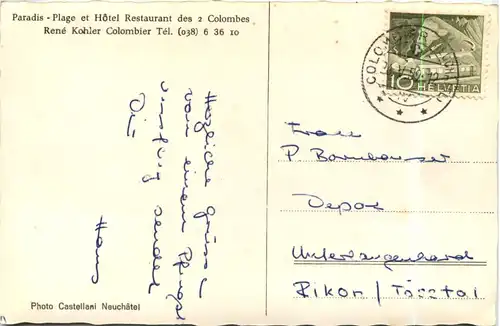 Paradis - Plage et Hôtel Restaurant des 2 Colombes
René Kohler Colombier Tél. (038) 6 36 10
Herzliche Grüsse
von einem
sendet
Dir
Hans
Photo Castellani Neuchâtel
COLOMBIER
10
HELVETIA
Frau
P. Bornhauser
Depot
Unterlangenhard
Rikon / Tösstal